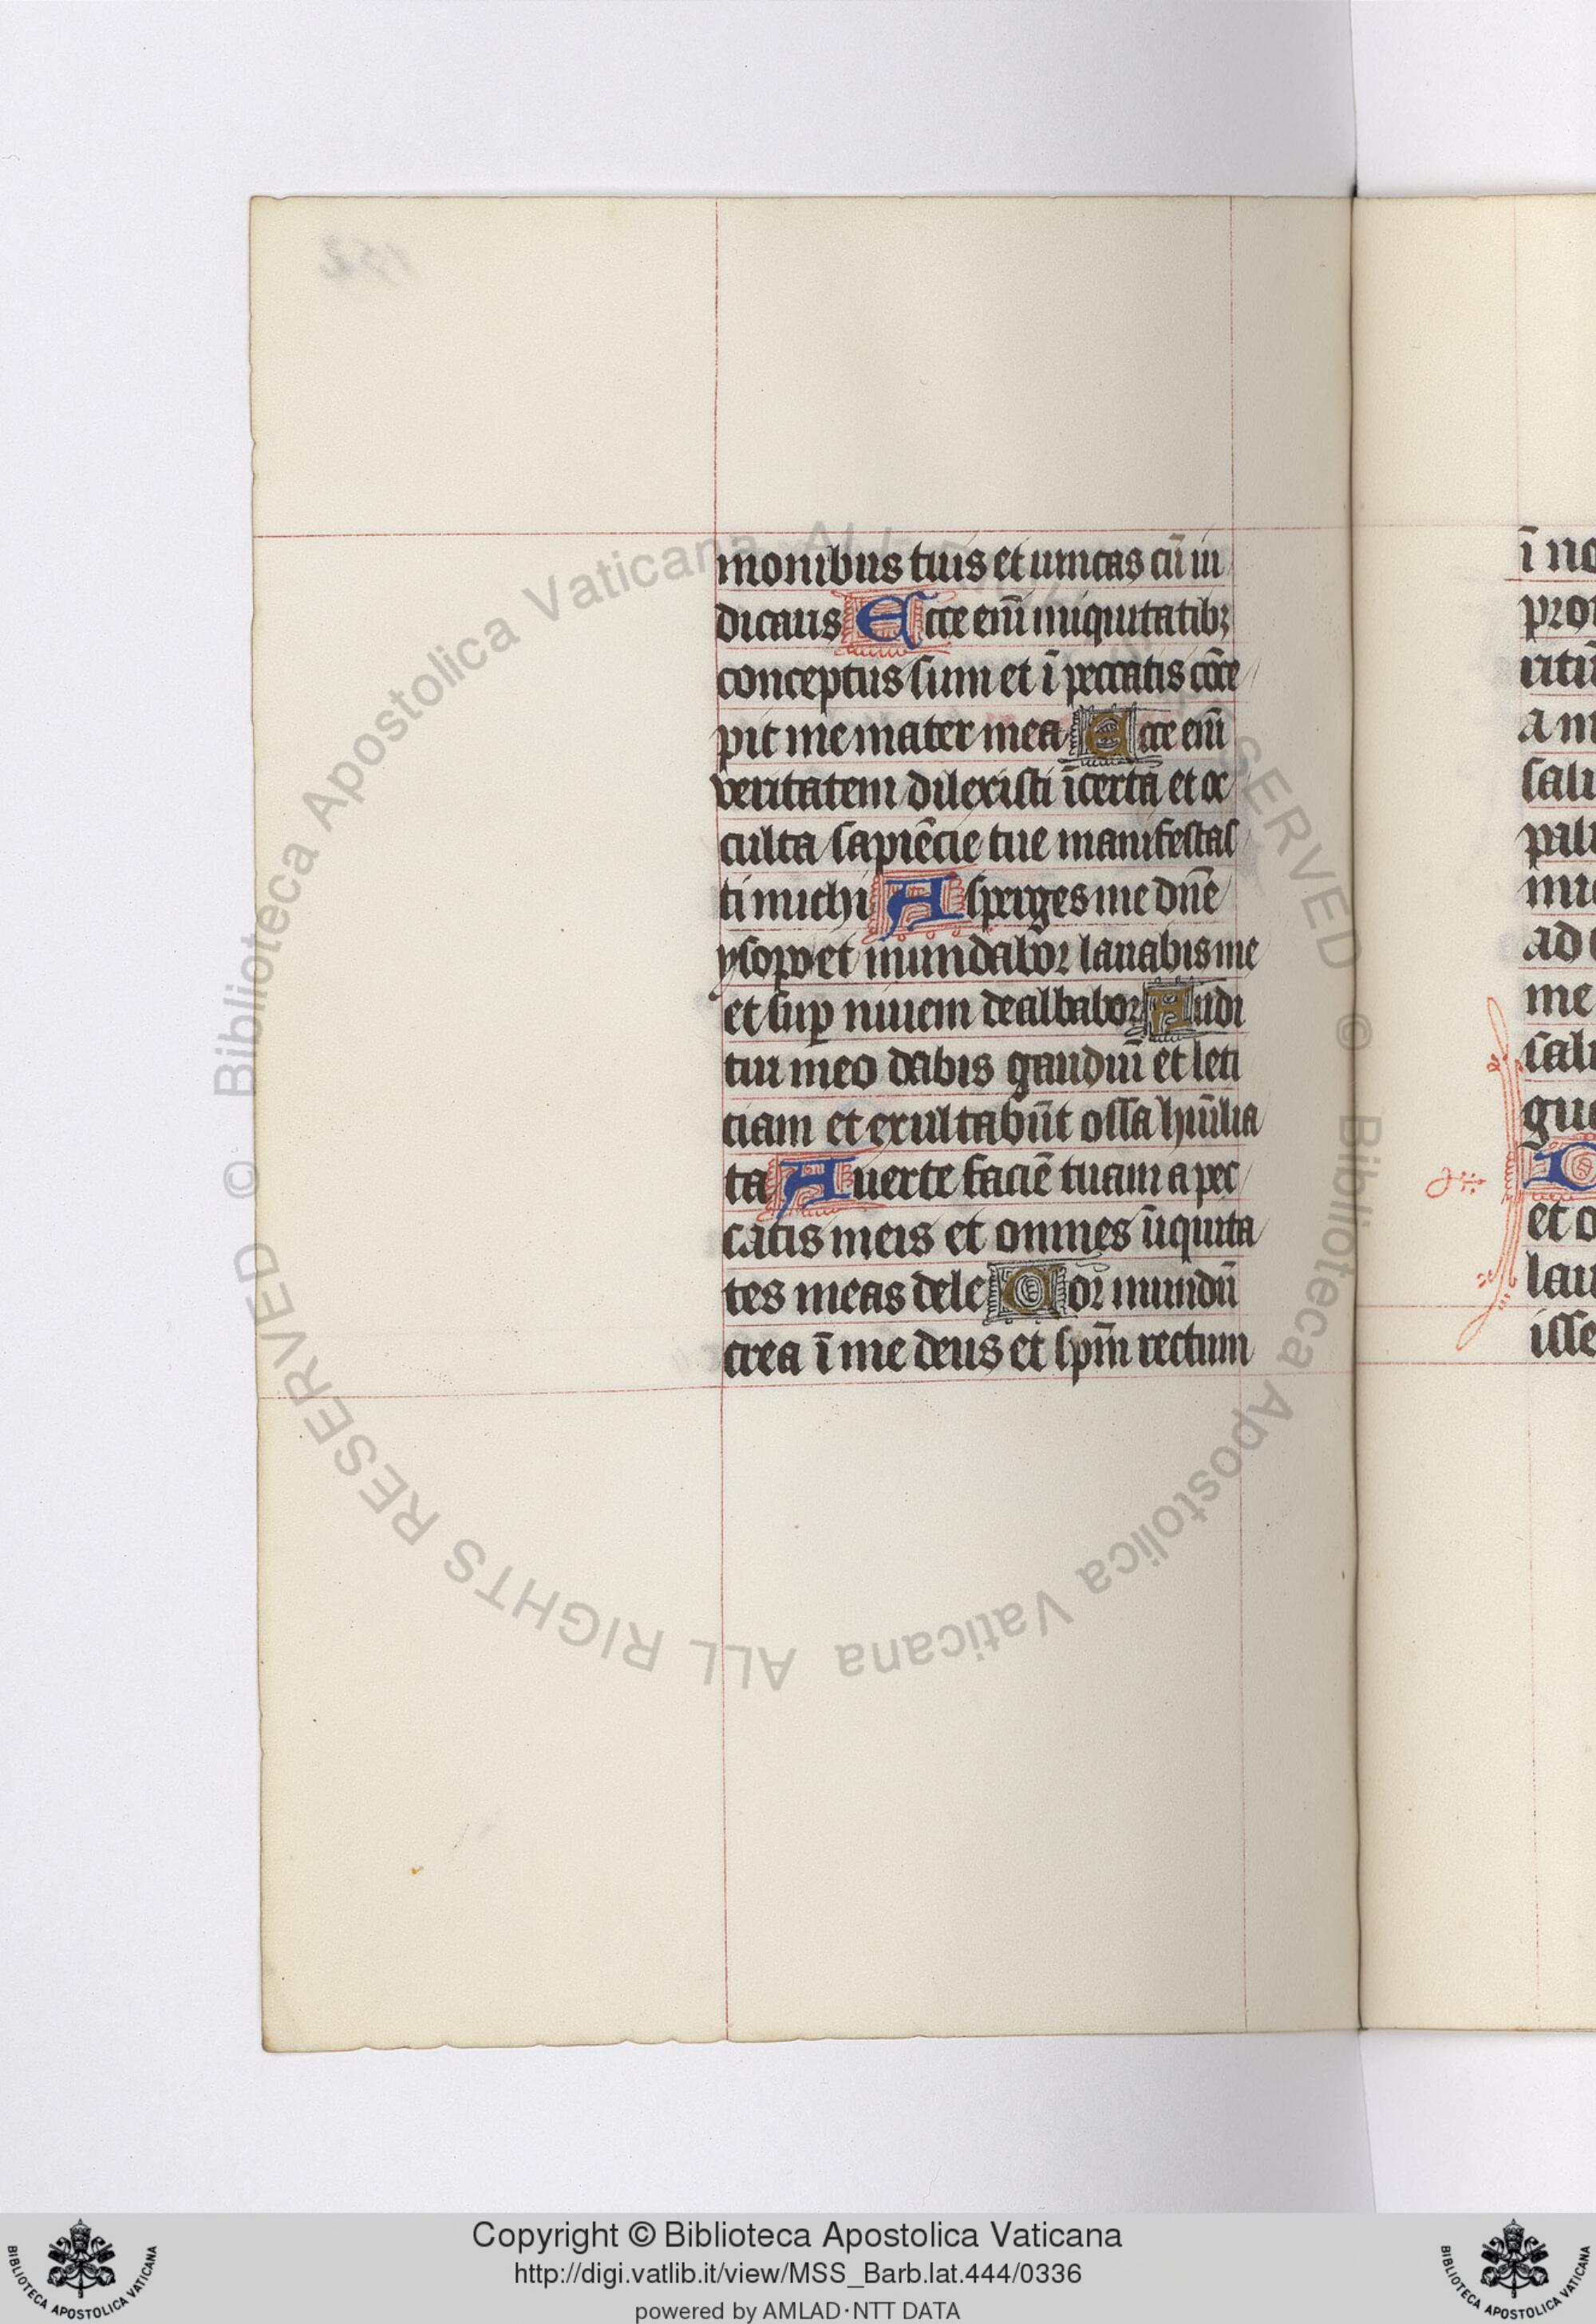 monibus tuis et uincas cū iu
dicaris Ecce eni̅ iniquitatibꝫ
conceptus sum et ī peccatis cōce
pit me mater mea Ecce eni̅
veritatem dilexisti īcerta et oc
culta sapiēcie tue manifestas
ti michi Asperges me dn̄e
ysopo et mundabor lauabis me
et suꝑ niuem dealbabor Audi
tui meo dabis gaudiū et leti
ciam et exultabūt ossa humilia
ta Auerte faciē tuam a pec
catis meis et omnes īiquita
tes meas dele Cor mundū
crea ī me deus et sp̄m rectum
ī no
pro
ritū
a m
sali
pali
mic
ad
me
salu
gua
D
et o
lau
isse
© Biblioteca Apostolica Vaticana ALL RIGHTS RESERVED © Biblioteca Apostolica Vaticana ALL RIGHTS RESERVED
Copyright © Biblioteca Apostolica Vaticana
http://digi.vatlib.it/view/MSS_Barb.lat.444/0336
powered by AMLAD·NTT DATA
BIBLIOTECA APOSTOLICA VATICANA
BIBLIOTECA APOSTOLICA VATICANA